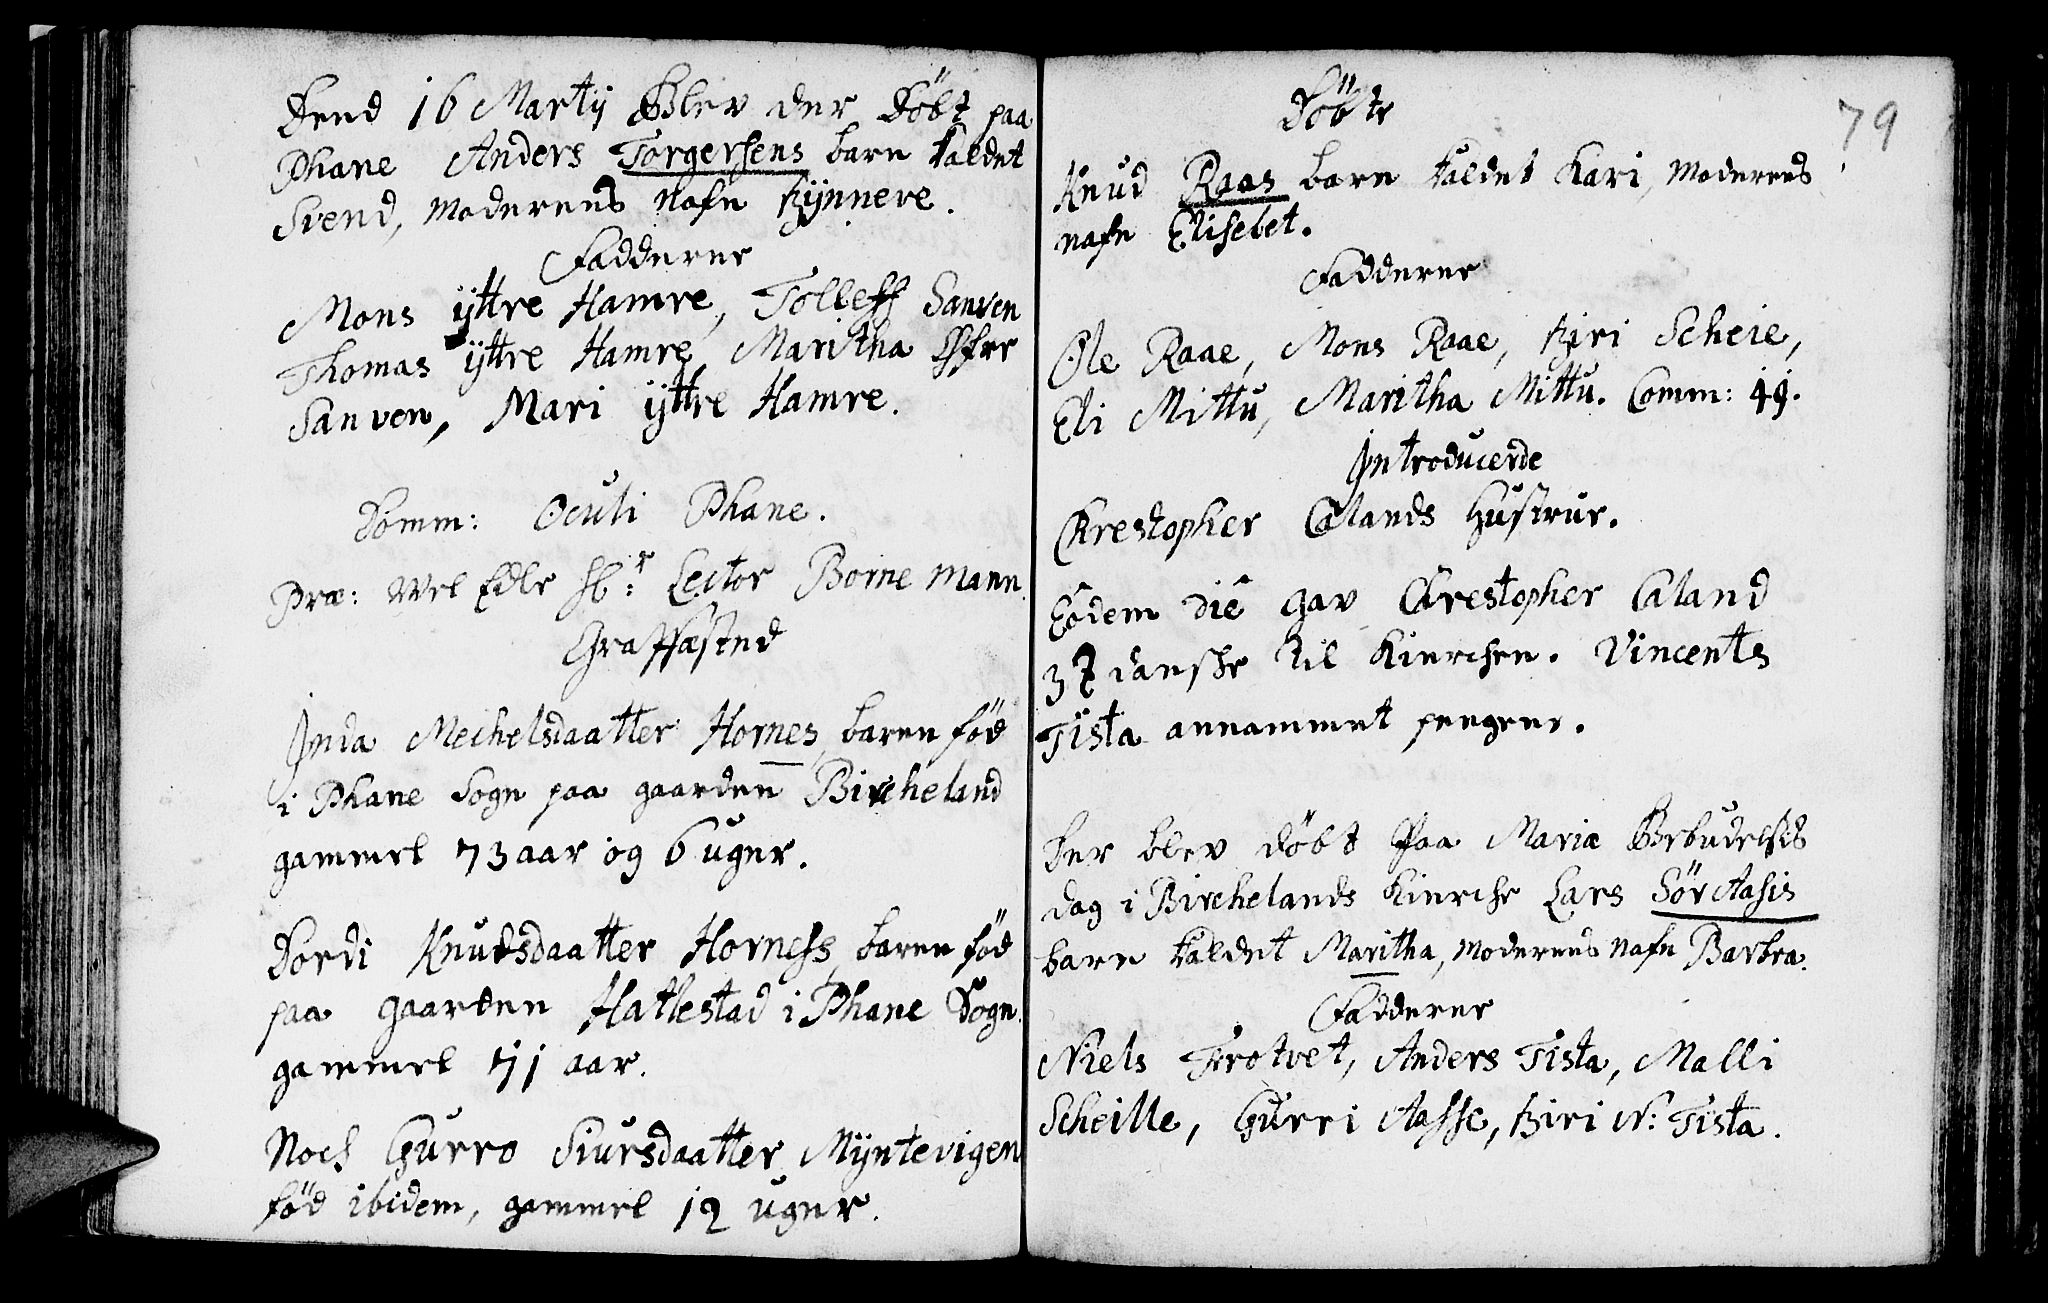 Dend 16 Martij Blev der Döbt paa
Phane Anders Torgersens barn kaldet
Svend, Moderens Nafn Kynnere.
Fadderne
Mons ÿttre Hamre, Tolleff Sanven
Thomas ÿttre Hamre, Maritha Øfre
Sanven, Mari ÿttre Hamre.
Domm: Oculi Phane.
Præ: Vel Edle Hr: Lector Bornemann
Graffæsted
Inda Mechelsdaatter Hornes, baaren fød
i Phane Sogn paa gaarden Bircheland
gammel 73 aar og 6 uger.
Dordi Knudsdaatter Horness, baaren fød
paa gaarden Hatlestad i Phane Sogn
gammel 71 aar.
Noch Gurro Siursdaatter Myntevigen
född ibidem, gammel 12 uger.
79
Döbte
Knud Raas barn kaldet Kari, Moderens
nafn Elisebet.
Fadderne
Ole Raae, Mons Raae, Kiri Scheie,
Eli Mittu, Maritha Mittu. Comm: 49.
Introducerde
Chrestopher Calands Hustrue.
Eodem die gav Chrestopher Caland
3 danske til Kierchen. Vincents
Tista annammet pengene.
Der blev döbt Paa Mariæ Bebudelses
dag i Birchelands Kierche Lars Sör Aasis
barn kaldet Maritha, Moderens Nafn Barbra.
Fadderne
Niels Trotvet, Anders Tista, Malli
Scheille, Gurri Aasse, Kiri N: Tista.